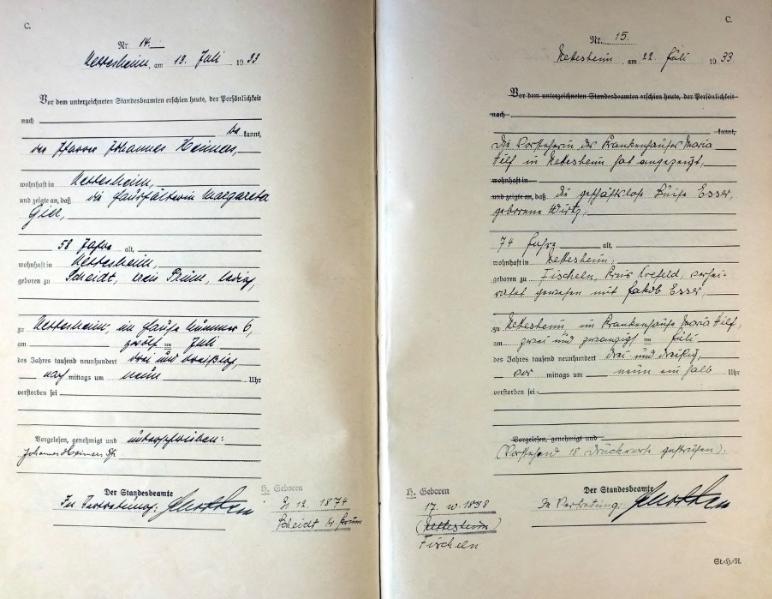 C.
Nr. 14.
Nettesheim, am 13. Juli 1933
Vor dem unterzeichneten Standesbeamten erschien heute, der Persönlichkeit
nach
be kannt,
der Pfarrer Johannes
wohnhaft in Nettesheim,
und zeigte an, daß die Haushälterin Margareta
58 Jahre alt,
wohnhaft in Nettesheim,
geboren zu Scheidt, Kreis Prüm, ledig,
zu Nettesheim, im Hause Nummer 6,
am zwölften Juli
des Jahres tausend neunhundert drei und dreißig,
nach mittags um neun Uhr
verstorben sei
Vorgelesen, genehmigt und unterschrieben:
Johannes Pfr.
Der Standesbeamte
In Vertretung:
H. Geboren
12. 1874
Scheidt
C.
Nr. 15
Nettesheim, am 22. Juli 1933
Vor dem unterzeichneten Standesbeamten erschien heute, der Persönlichkeit
nach
kannt,
Die Vorsteherin des Krankenhauses Maria
Hilf in Nettesheim hat angezeigt,
wohnhaft in
und zeigte an, daß die geschäftslose Luise Esser,
geborene Wirtz,
74 Jahre alt,
wohnhaft in Nettesheim,
geboren zu Fischeln, Kreis Crefeld, verhei-
ratet gewesen mit Jakob Esser,
zu Nettesheim, im Krankenhause Maria Hilf,
am zwei und zwanzigsten Juli
des Jahres tausend neunhundert drei und dreißig,
vor mittags um neun ein halb Uhr
verstorben sei
Vorgelesen, genehmigt und
(Vorstehend 18 Druckworte gestrichen).
Der Standesbeamte
In Vertretung:
H. Geboren
17.
(Nettesheim)
Fischeln
St.H./N.